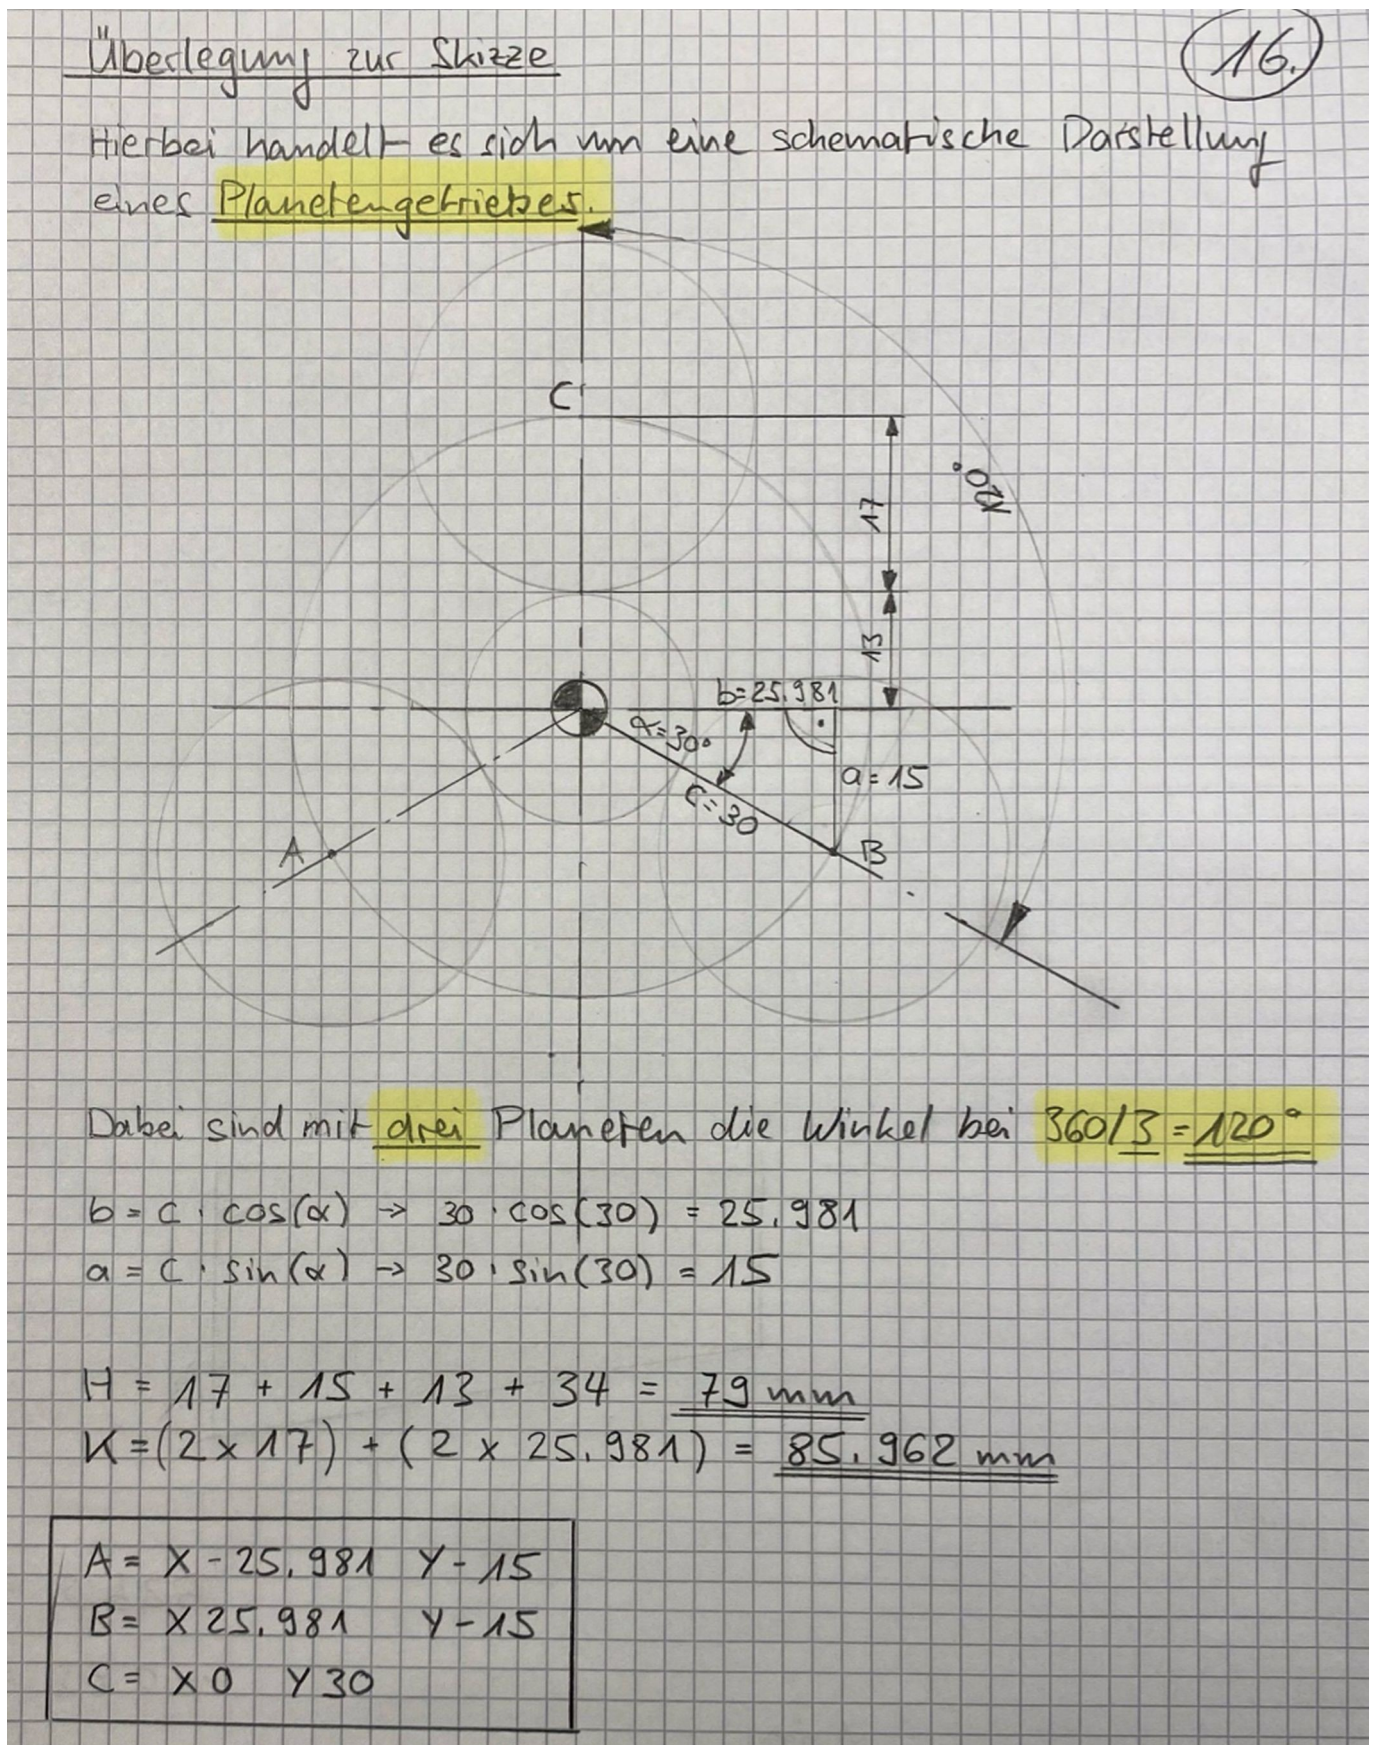 Überlegung zur Skizze
16.
Hierbei handelt es sich um eine schematische Darstellung
eines Planetengetriebes.
C
17
120°
13
b=25.981
α=30°
a=15
c=30
A
B
Dabei sind mit drei Planeten die Winkel bei 360/3=120°
b = c · cos(α) → 30 · cos(30) = 25.981
a = c · sin(α) → 30 · sin(30) = 15
H = 17 + 15 + 13 + 34 = 79 mm
K = (2 x 17) + (2 x 25.981) = 85.962 mm
A = X - 25.981 Y - 15
B = X 25.981 Y - 15
C = X 0 Y 30